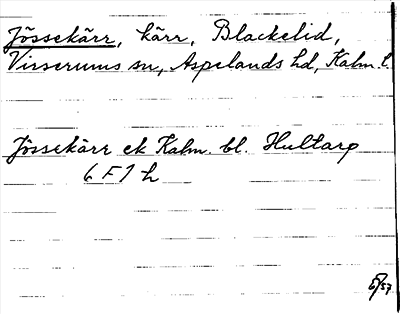 Jössekärr, kärr, Blackelid,
Visserums sn, Aspelands hd, Kalm. l.
Jössekärr ek Kalm. bl. Hultarp
6 F 1 h